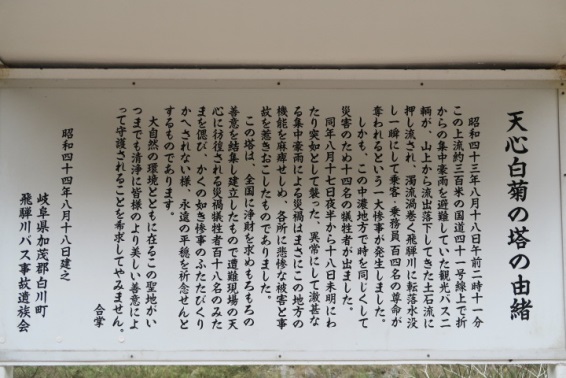 天心白菊の塔の由緒
昭和四十三年八月十八日午前二時十一分
この上流約三百米の国道四十一号線上で折
からの集中豪雨を避難していた観光バス二
輌が、山上から流出落下してきた土石流に
押し流され、濁流渦巻く飛騨川に転落水没
し一瞬にして乗客・乗務員百四名の尊命が
奪われるという一大惨事が発生しました。
しかも、この中濃地方で時を同じくして
災害のため十四名の犠牲者が出ました。
同年八月十七日夜半から十八日未明にわ
たり突如として襲った、異常にして激甚な
る集中豪雨による災禍はまさにこの地方の
機能を麻痺せしめ、各所に悲惨な被害と事
故を惹きおこしたものでありました。
この塔は、全国に浄財を求めもろもろの
善意を結集し建立したもので遭難現場の天
心に彷徨される災禍犠牲者百十八名のみた
まを偲び、かくの如き惨事のふたたびくり
かへされない様、永遠の平穏を祈念せんと
するものであります。
大自然の環境とともに在るこの聖地がい
つまでも清浄に皆様のより美しい善意によ
って守護されることを希求してやみません。
合掌
昭和四十四年八月十八日建之
岐阜県加茂郡白川町
飛騨川バス事故遺族会